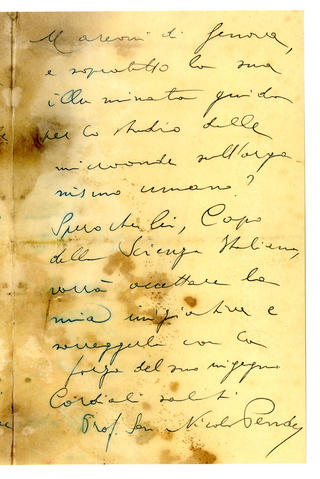 Marconi di Genova,
e sopratutto la sua
illuminata guida
per lo studio delle
microonde sull'orga
nismo umano?
Spero che Lei, Capo
della Scienza Italiana,
vorrà accettare la
mia iniziativa e
sorreggerla con la
forza del suo ingegno
Cordiali saluti
Prof. Sen Nicola Pende